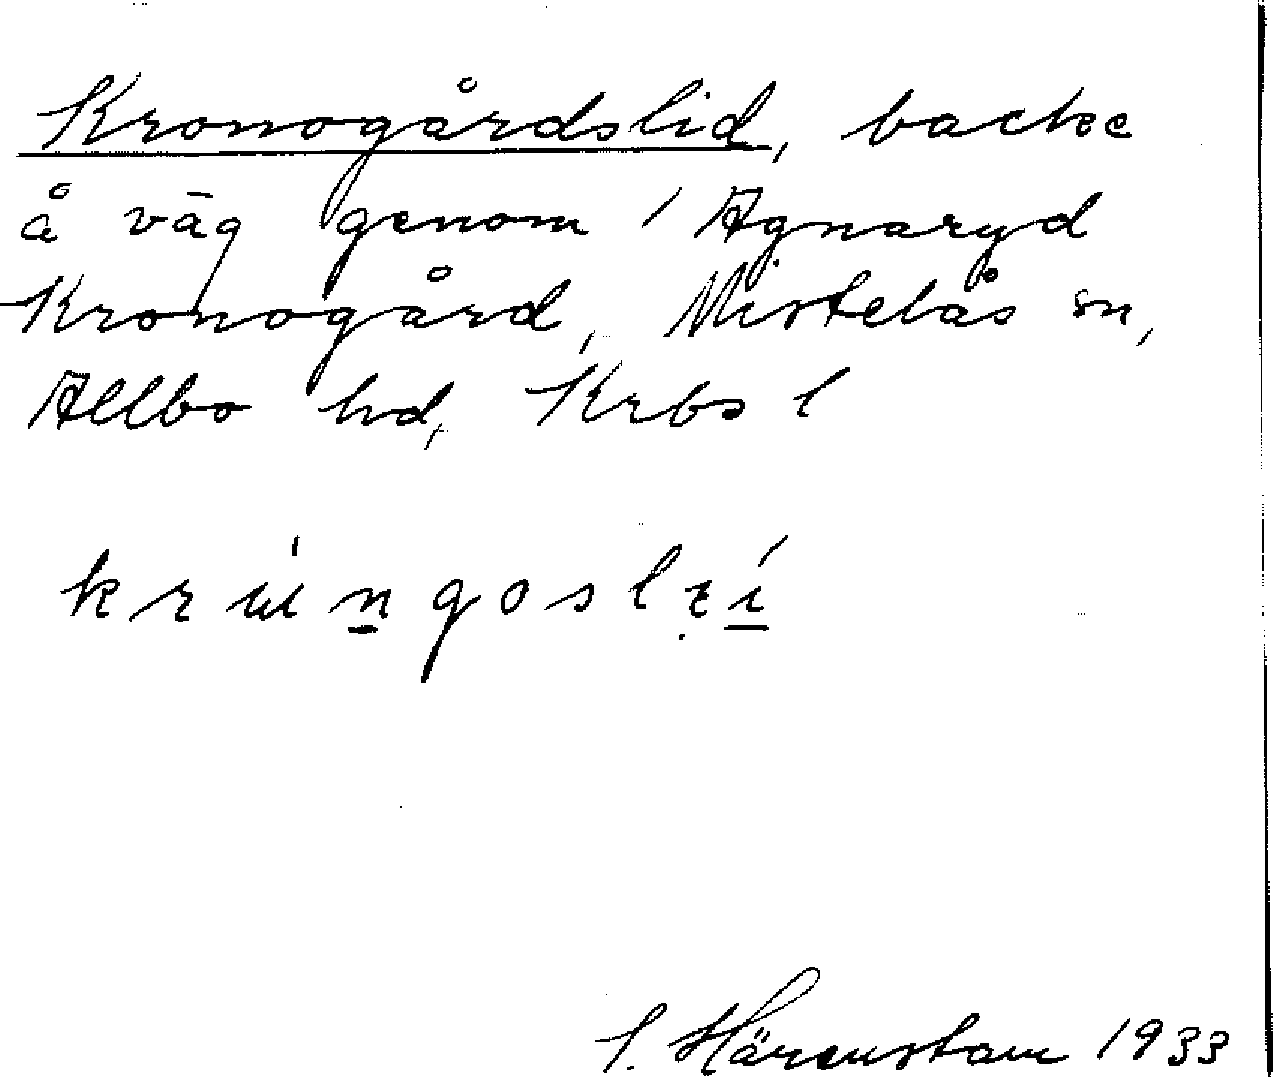 Kronogårdslid, backe
å väg genom 1 Agnaryd
Kronogård, Mistelås sn,
Allbo hd, Krbs l
S. Härenstam 1933